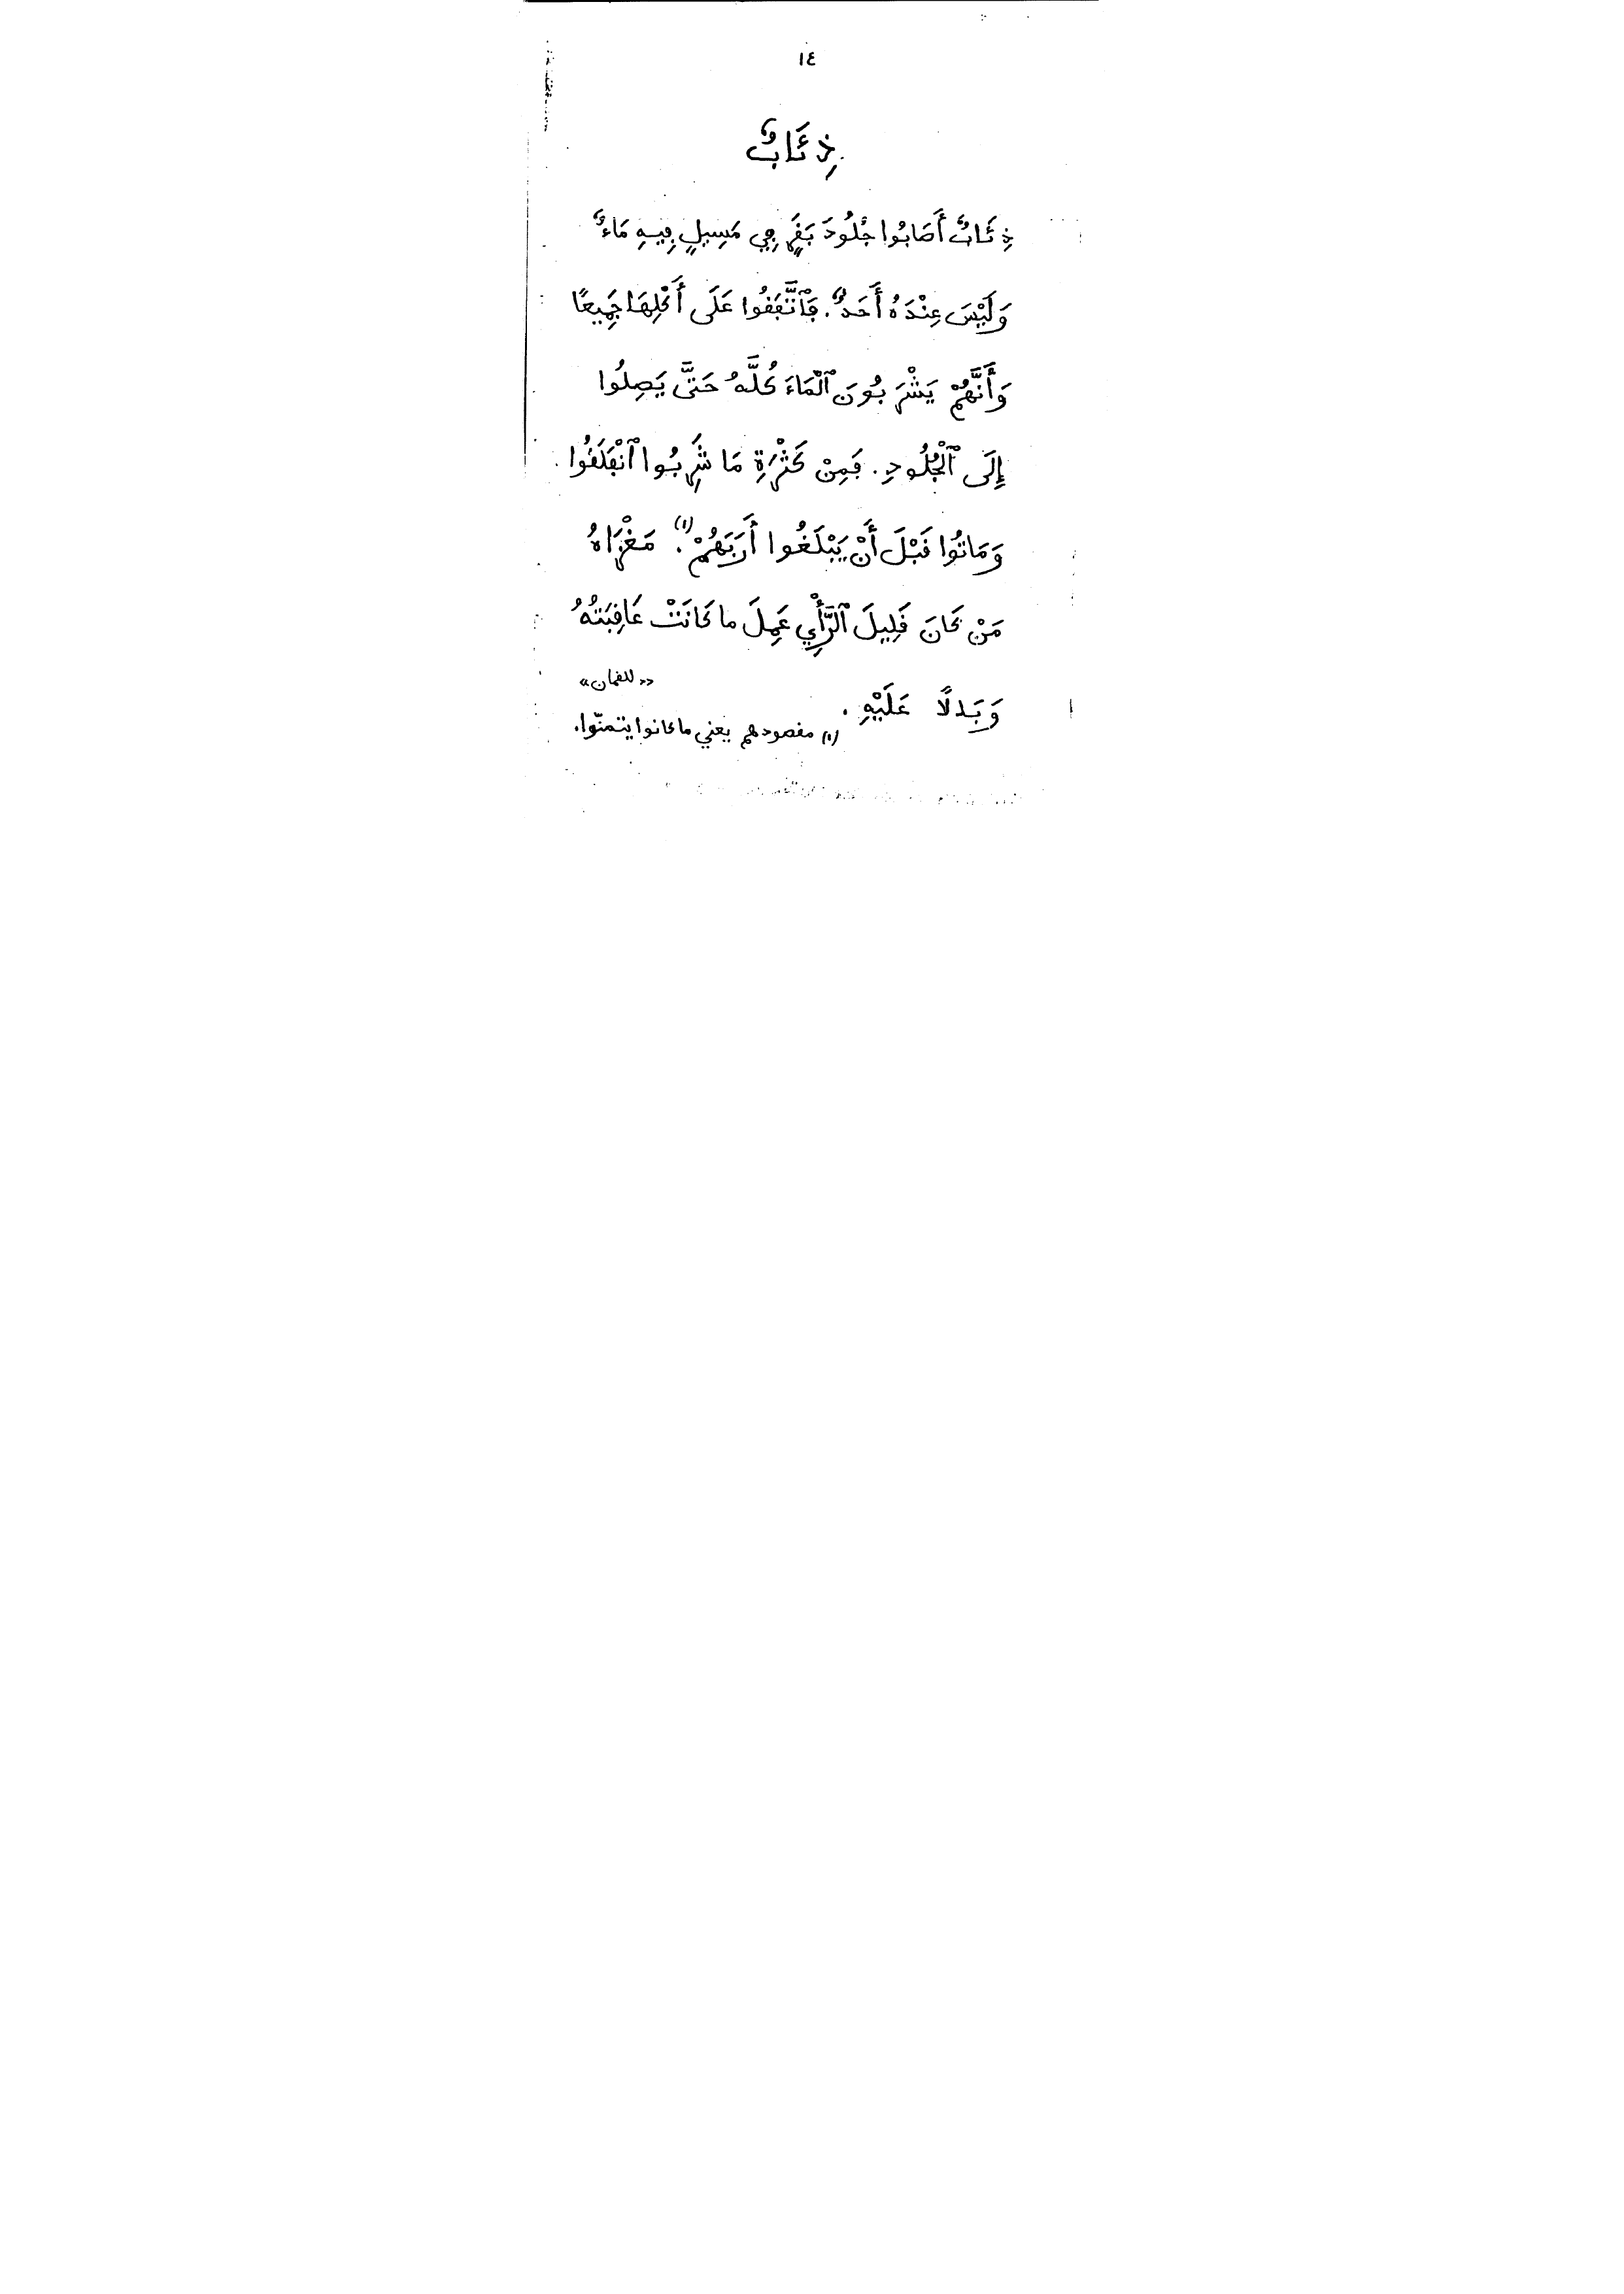 ١٤
ذِئَابٌ
ذِئَابٌ أَصَابُوا جُلُودَ بَقَرٍ فِي مَسِيلٍ فِيهِ مَاءٌ
وَلَيْسَ عِنْدَهُ أَحَدٌ. فَٱتَّفَقُوا عَلَى أَكْلِهَا جَمِيعًا
وَأَنَّهُمْ يَشْرَبُونَ ٱلْمَاءَ كُلَّهُ حَتَّى يَصِلُوا
إِلَى ٱلْجُلُودِ. فَمِنْ كَثْرَةِ مَا شَرِبُوا ٱنْفَلَقُوا
وَمَاتُوا قَبْلَ أَنْ يَبْلَغُوا أَرَبَهُمْ(١). مَغْزَاهُ
مَنْ كَانَ قَلِيلَ ٱلرَّأْيِ عَمِلَ ما كَانَتْ عَاقِبَتُهُ
وَبَالًا عَلَيْهِ.
«للقمان»
(١) مقصودهم يعني ما كانوا يتمنّوا.